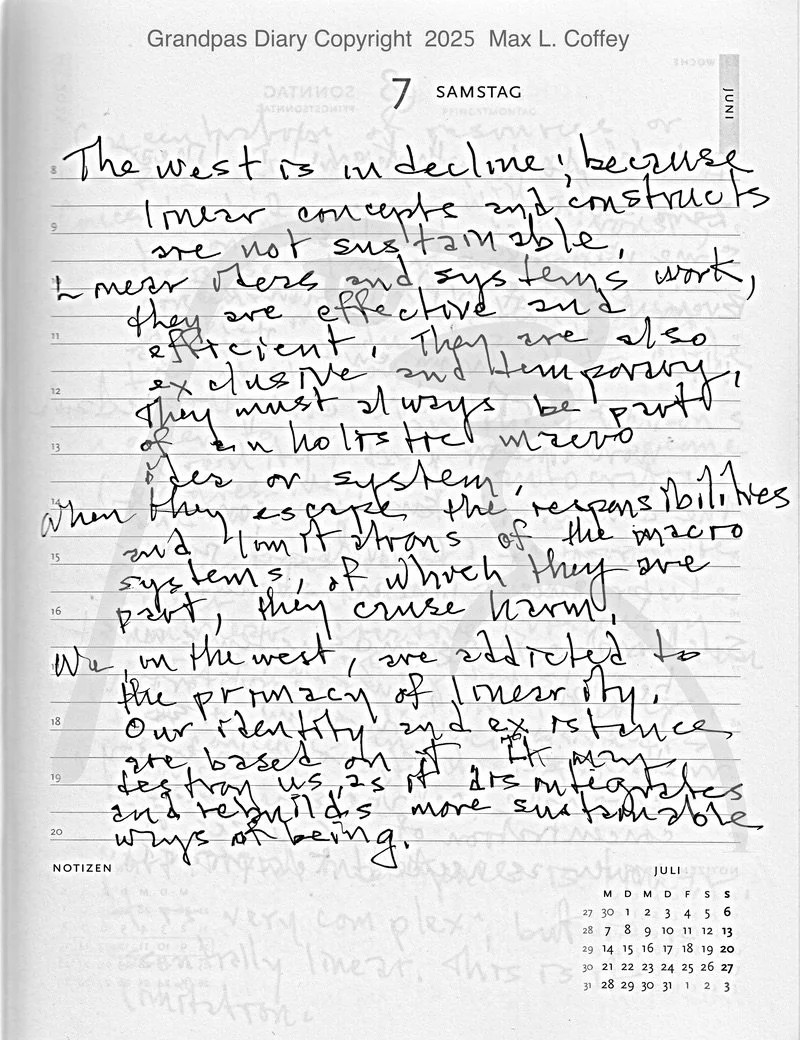 Grandpas Diary Copyright 2025 Max L. Coffey
7 SAMSTAG
JUNI
The west is in decline; because
linear concepts and constructs
are not sustainable.
Linear ideas and systems work,
they are effective and
efficient. They are also
exclusive and temporary.
They must always be part
of an holistic macro
idea or system.
When they escape the responsibilities
and limitations of the macro
systems, of which they are
part, they cause harm.
We, in the west, are addicted to
the primacy of linearity.
Our identity and existance
are based on it. It may
destroy us, as it disintigrates
and rebuilds more sustainable
ways of being.
8
9
11
12
13
14
15
16
18
19
20
NOTIZEN
JULI
M D M D F S S
27 30 1 2 3 4 5 6
28 7 8 9 10 11 12 13
29 14 15 16 17 18 19 20
30 21 22 23 24 25 26 27
31 28 29 30 31 1 2 3
very complex, but
linear. This is
limitation.